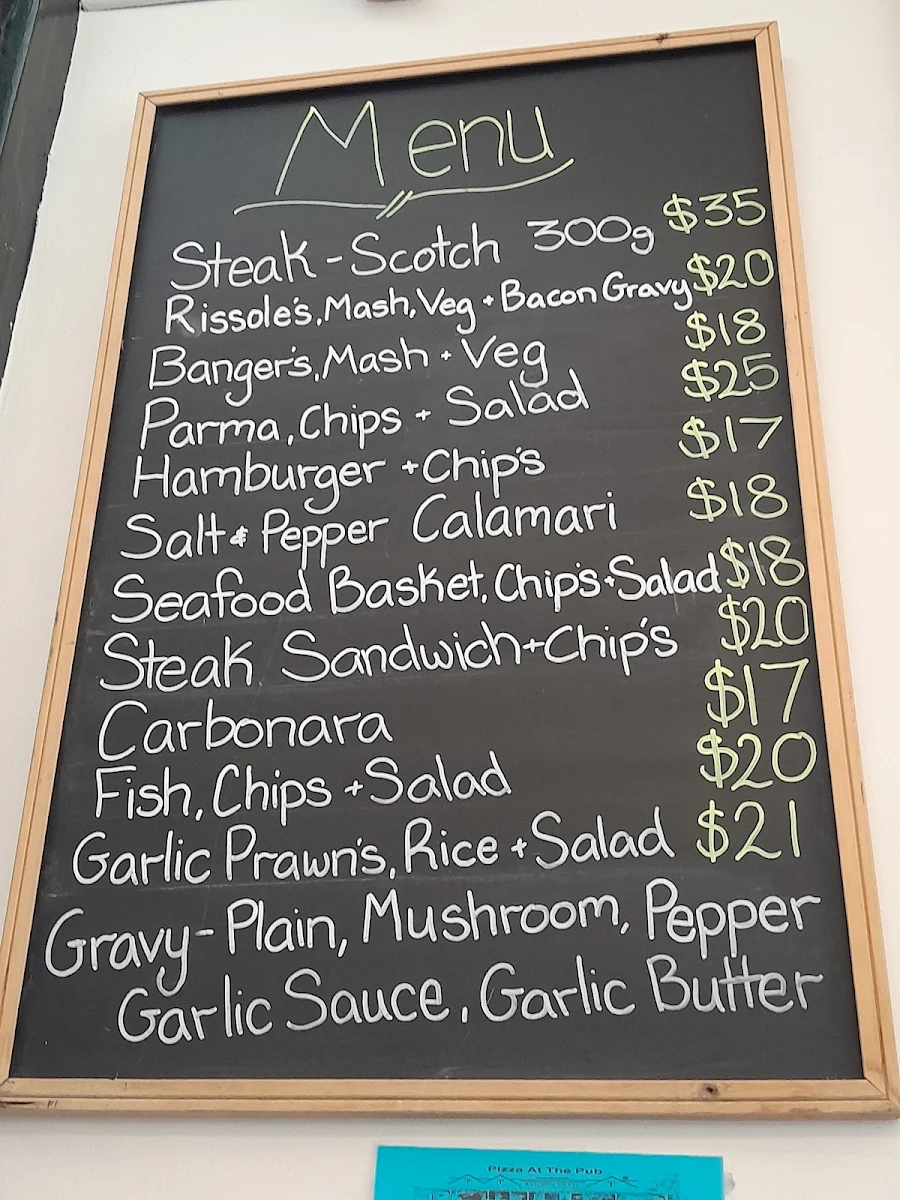 Menu
Steak - Scotch 300g $35
Rissole's, Mash, Veg + Bacon Gravy $20
Banger's, Mash + Veg $18
Parma, Chips + Salad $25
Hamburger + Chip's $17
Salt & Pepper Calamari $18
Seafood Basket, Chip's + Salad $18
Steak Sandwich + Chip's $20
Carbonara $17
Fish, Chips + Salad $20
Garlic Prawn's, Rice + Salad $21
Gravy - Plain, Mushroom, Pepper
Garlic Sauce, Garlic Butter
Pizza At The Pub